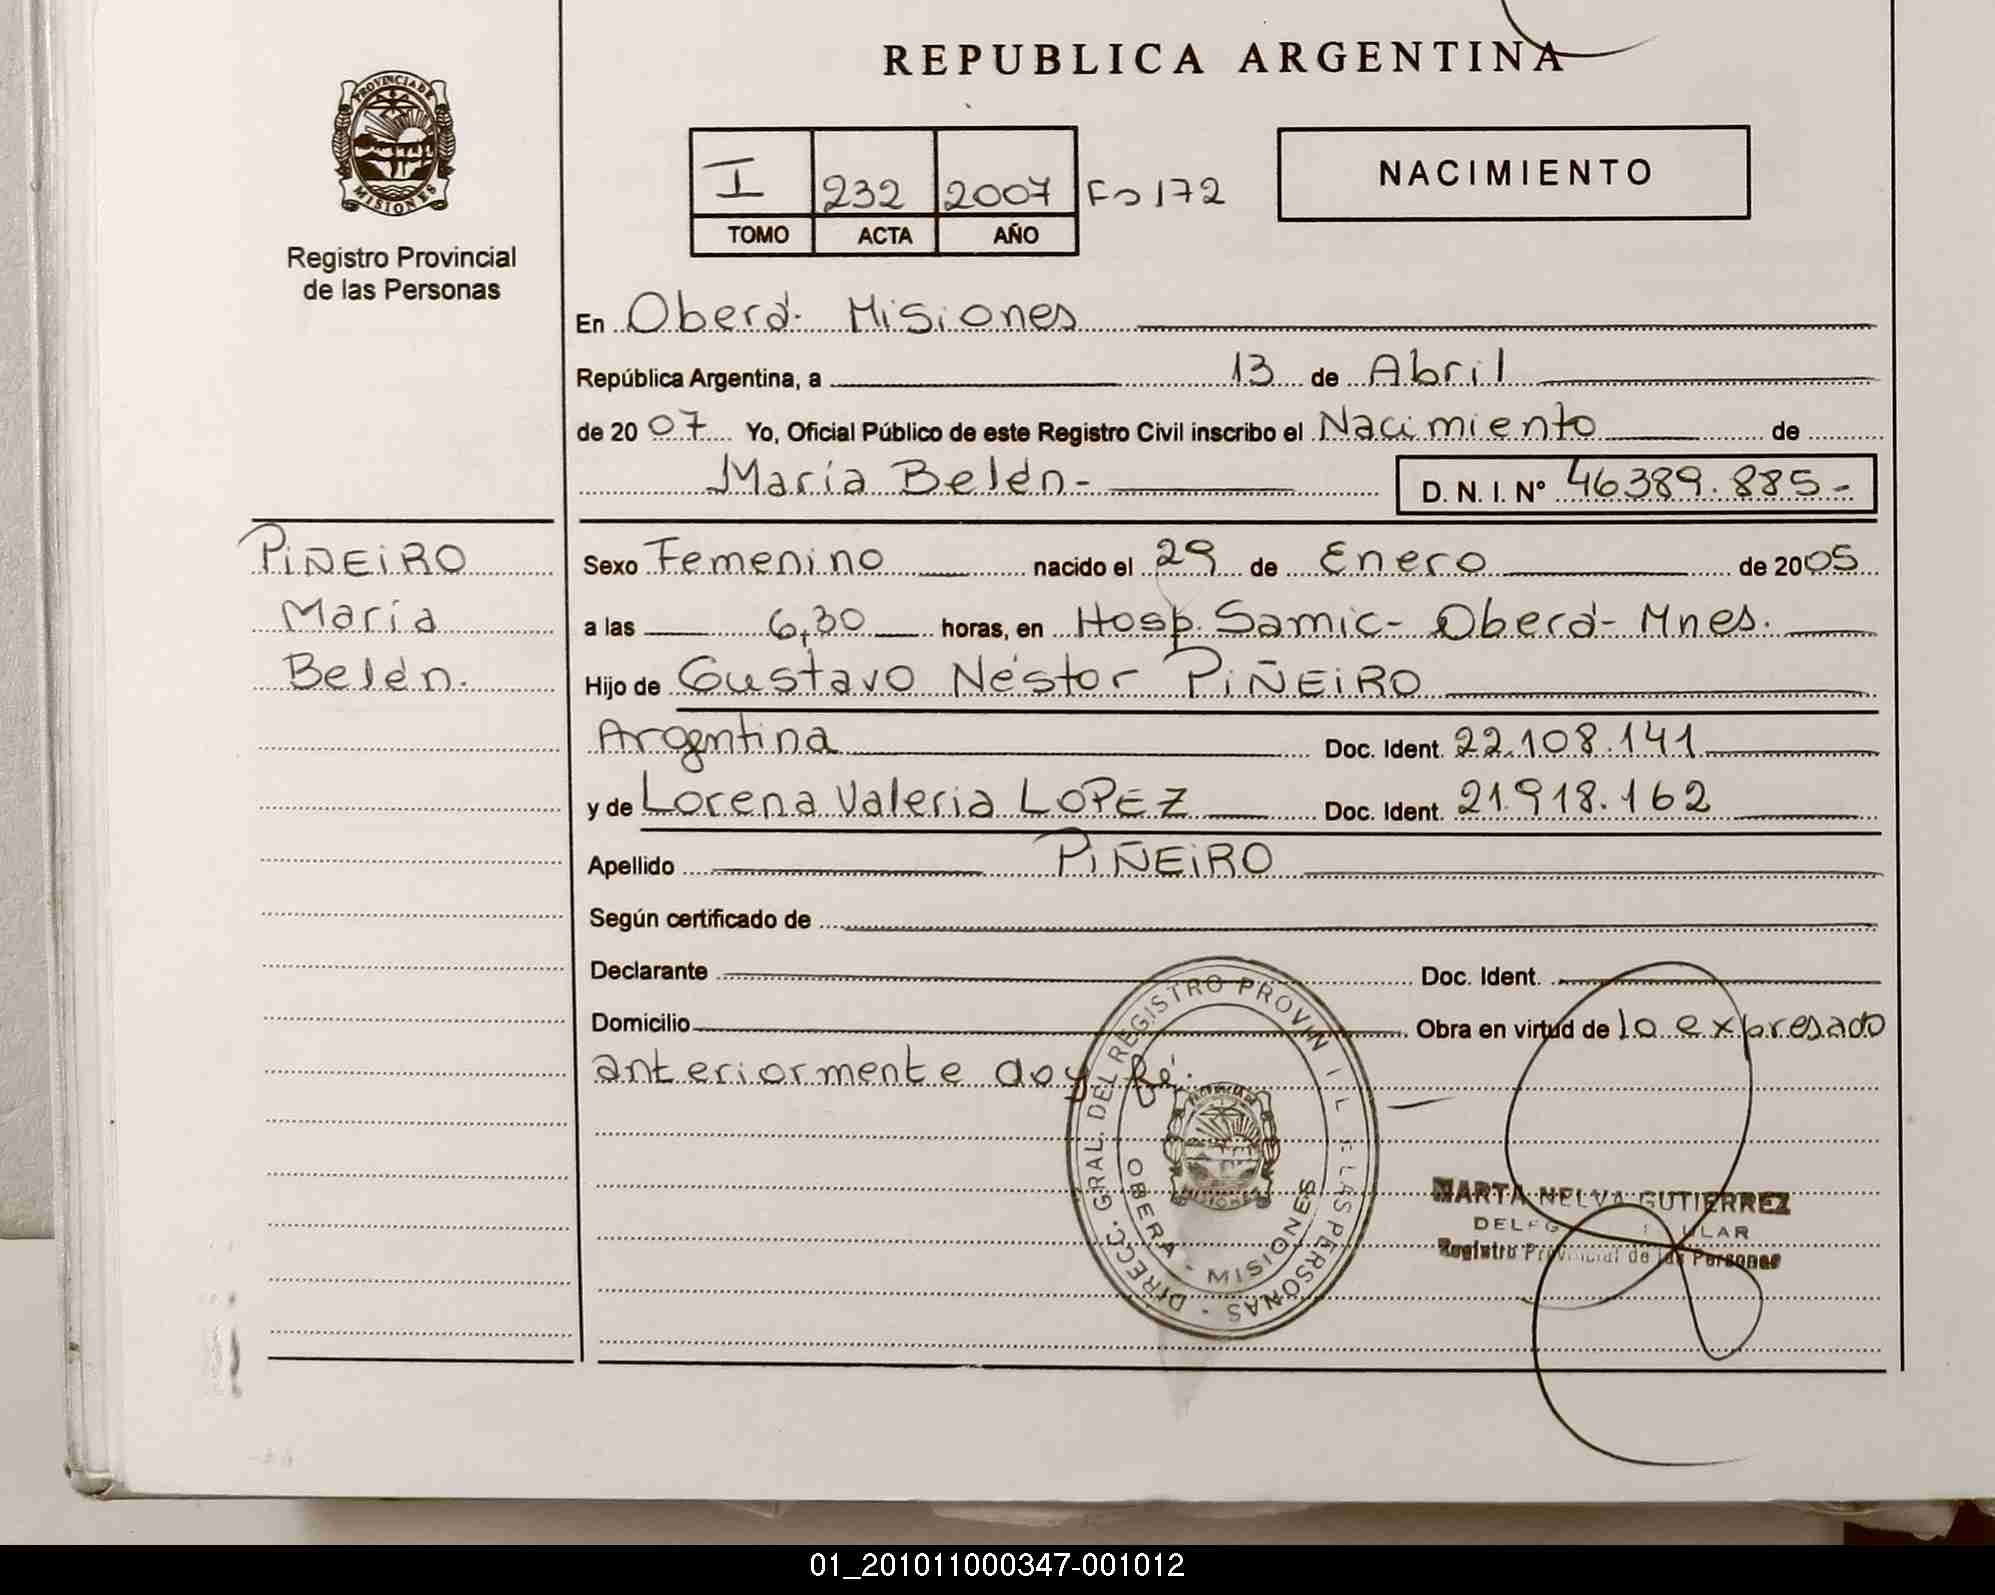 REPUBLICA ARGENTINA
PROVINCIA DE MISIONES
Registro Provincial
de las Personas
I 232 2007 Fo 172
TOMO ACTA AÑO
NACIMIENTO
En Oberá - Misiones
República Argentina, a 13 de Abril
de 2007 Yo, Oficial Público de este Registro Civil inscribo el Nacimiento de
María Belén - D. N. I. Nº 46389.885-
PIÑEIRO
María
Belén.
Sexo Femenino nacido el 29 de Enero de 2005
a las 6,30 horas, en Hosp. Samic - Oberá - Mnes.
Hijo de Gustavo Néstor PIÑEIRO
Argentina Doc. Ident. 22.108.141
y de Lorena Valeria LOPEZ Doc. Ident. 21.918.162
Apellido PIÑEIRO
Según certificado de
Declarante Doc. Ident.
Domicilio Obra en virtud de lo expresado
anteriormente doy fé.
DIRECC. GRAL. DEL REGISTRO PROVIN LAS PERSONAS
OBERA - MISIONES
MARTA NELVA GUTIERREZ
Registro Provincial de las Personas
01_201011000347-001012